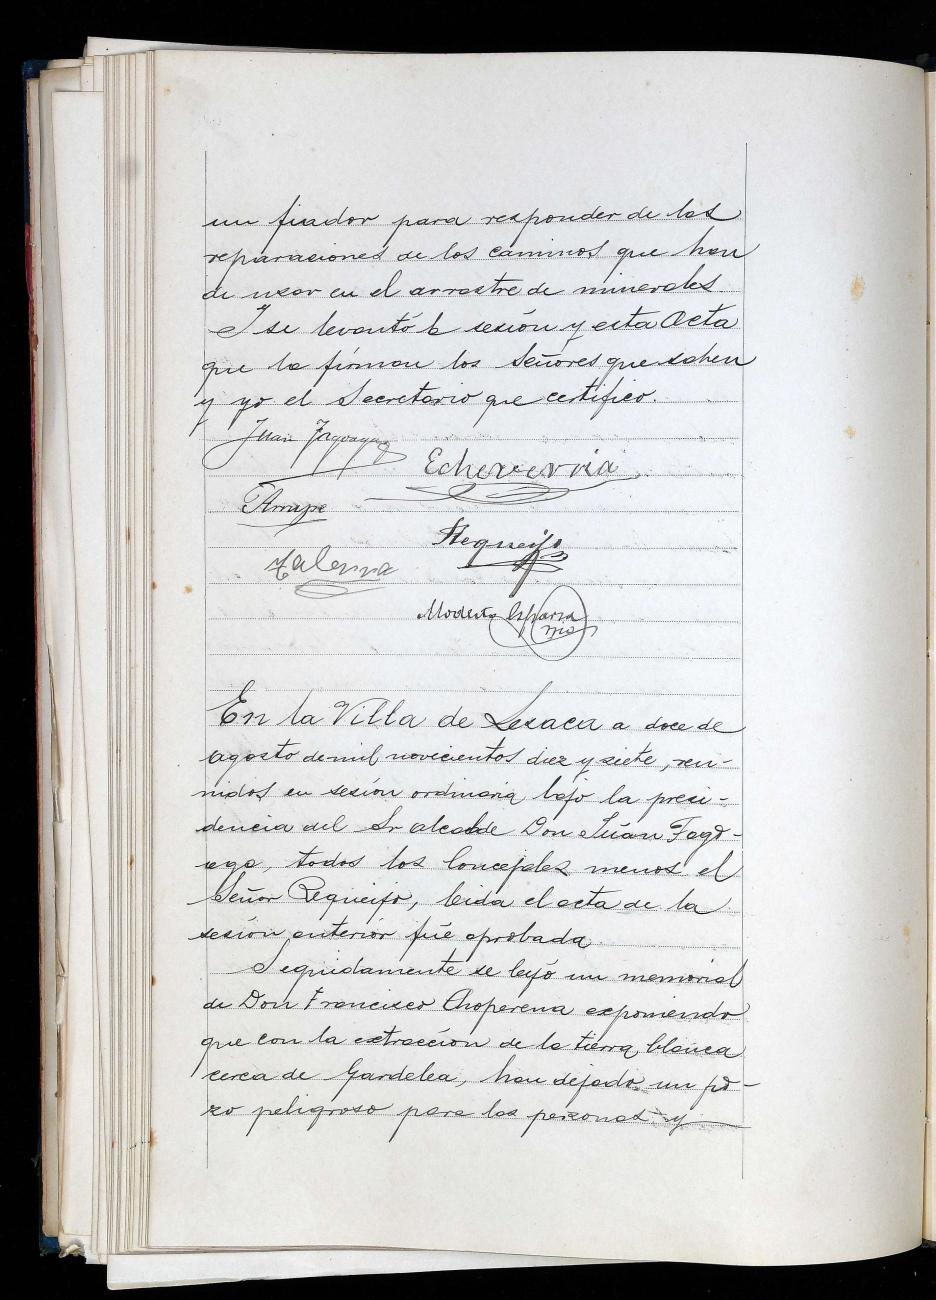 un fiador para responder de las
reparaciones de los caminos que han
de usar en el arrastre de minerales.
Y se levantó la sesión y esta Acta
que la firman los Señores que saben
y yo el Secretario que certifico.
Juan Fagoaga
Echeverria
Arrupe
Requeijo
Modesto Esparza
En la Villa de Lesaca a doce de
agosto de mil novecientos diez y siete, reu-
nidos en sesión ordinaria bajo la presi-
dencia del Sr alcalde Don Juan Fago-
aga, todos los Concejales menos el
Señor Requeijo, leida el acta de la
sesión anterior fué aprobada.
Seguidamente se leyó un memorial
de Don Francisco Choperena exponiendo
que con la extracción de la tierra blanca
cerca de Gardelea, han dejado un po-
zo peligroso para las personas y